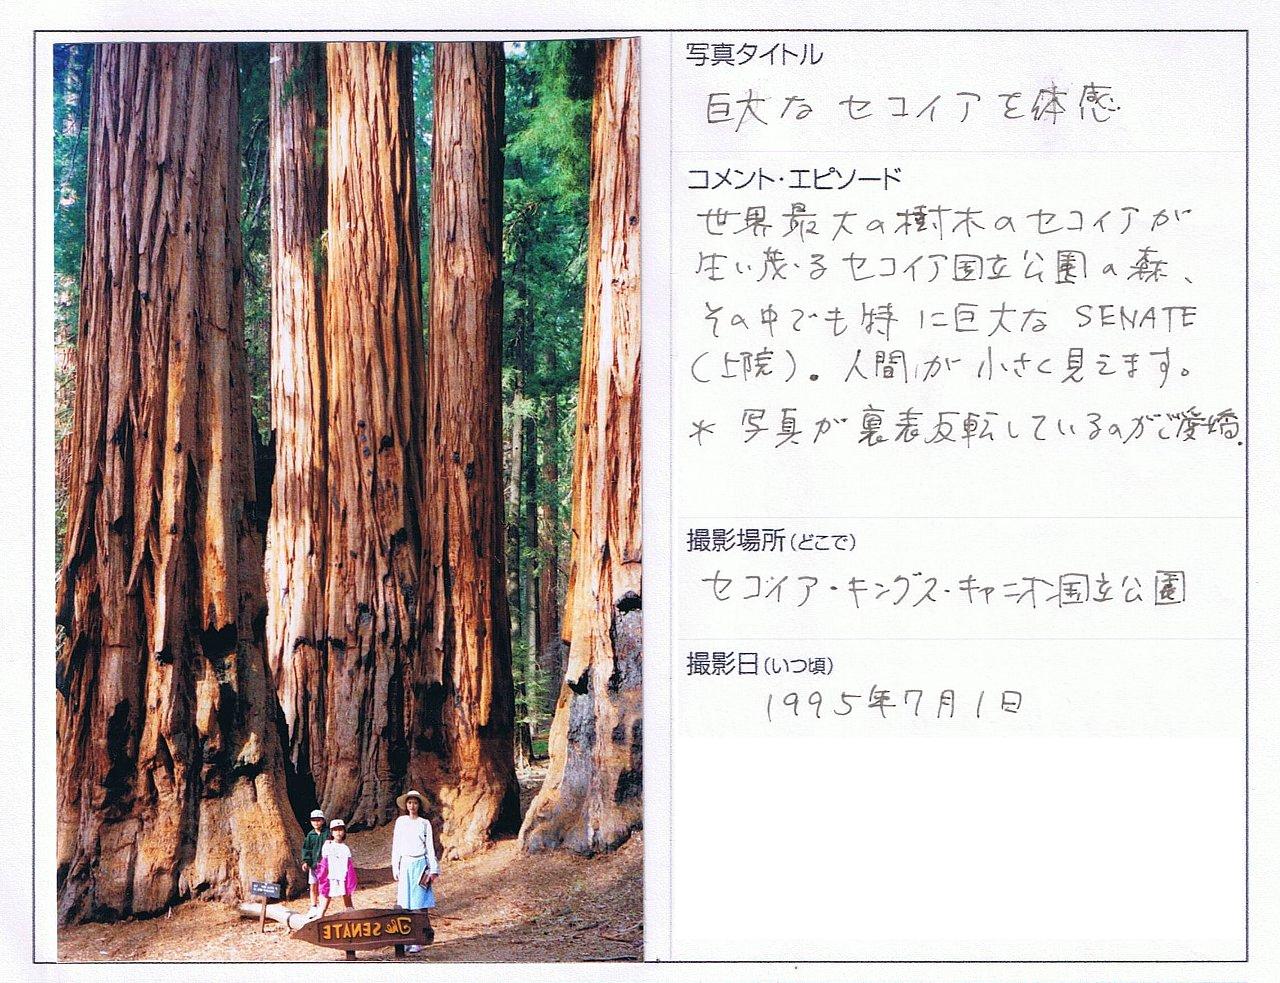 写真タイトル
巨大な セコイアを体感
コメント・エピソード
世界最大の樹木のセコイアが
生い茂る セコイア国立公園の森、
その中でも特に巨大な SENATE
(上院)。人間が 小さく見えます。
* 写真が裏表反転しているのがご愛嬌.
撮影場所(どこで)
セコイア・キングス・キャニオン国立公園
撮影日(いつ頃)
1995年7月1日
The SENATE